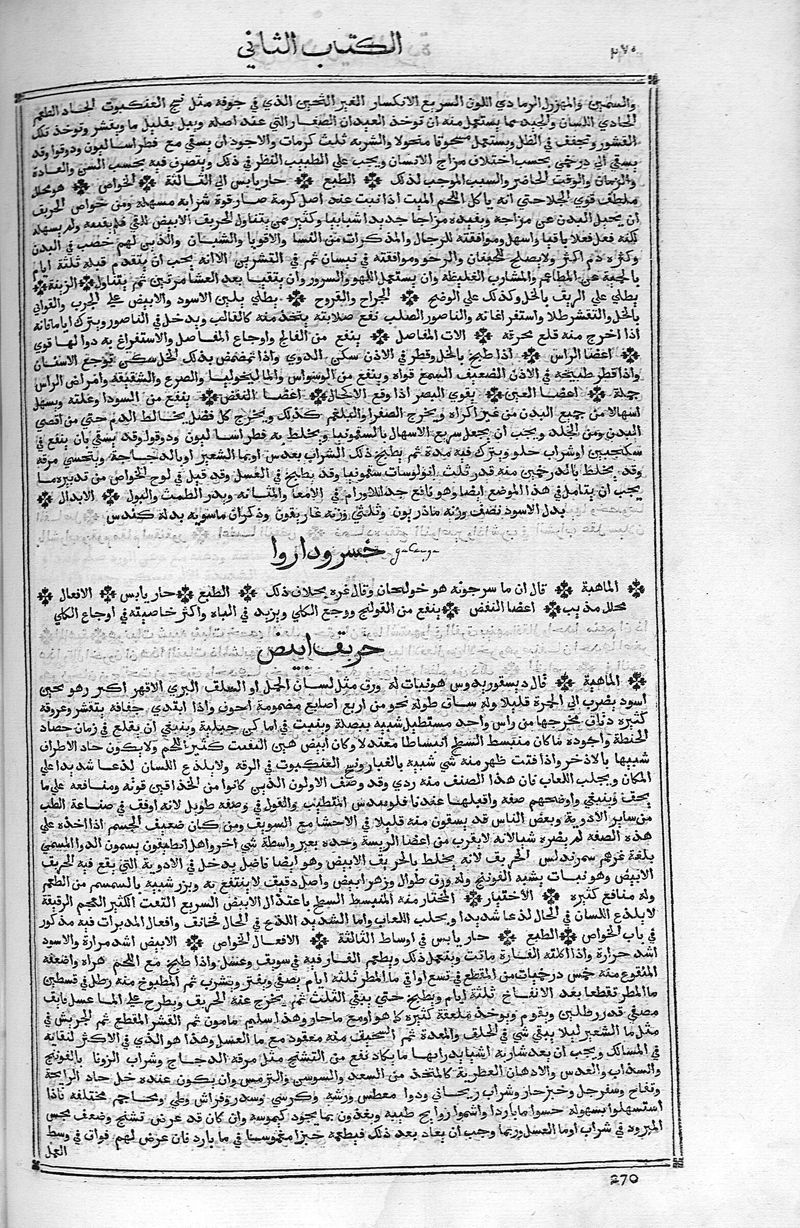 ٢٧٠
الكتاب الثاني
والسمين والمهزول الرمادي اللون السريع الانكسار الغير الثخين الذي في جوفه مثل نسج العنكبوت الحاد الطعم
الحاذي اللسان والجيد مما يستعمل منه ان توخذ العيدان الصغار التي عند اصله ويبل بقليل ما ويقشر وتوخذ تلك
القشور وتجفف في الظل ويستعمل مسحوقا منخولا والشربه ثلث كرمات والاجود ان يسقي مع فطراساليون ودوقوا وقد
يسقي الي درخمي بحسب اختلاف مزاج الانسان ويجب علي الطبيب النظر في ذلك ويتصرف فيه بحسب السن والعادة
والزمان والوقت الحاضر والسبب الموجب لذلك ❈ الطبع ❈ حار يابس الي الثالثة ❈ الخواص ❈ هو محلل
ملطف قوي الجلا حتي انه ياكل اللحم الميت اذا نبت عند اصل كرمة صار قوة شرابه مسهله ومن خواص الخربق
ان يحيل البدن عن مزاجه ويفيده مزاجا جديدا
وكثره دم اكثر ولا يصلح في نيسان ثم في التشرين الا انه يجب ان يتقدم قبله ثلثة ايام
بالحمية عن المطاعم والمشارب الغليظة وان يستعمل اللهو والسرور وان يتقيا بعد العشا مرتين ثم يتناول ❈ الزينة ❈
يطلي علي البهق بالخل وكذلك علي الوضح ❈ الجراح والقروح ❈ يطلي بلبن الاسود والابيض علي الجرب والقوابي
بالخل والتقشر طلا واستفراغا به والناصور الصلب تقع صلابته يتخذ منه كالقالب ويدخل في الناصور ويترك اياما فانه
اذا اخرج منه قلع محرقه ❈ الات المفاصل ❈ ينفع من الفالج واوجاع المفاصل والاستفراغ به دوا لها قوي
❈ اعضا الراس ❈ اذا طبخ بالخل وقطر في الاذن سكن الدوي واذا تمضمض بذلك الخل سكن وجع الاسنان
واذا قطر طبيخه في الاذن الضعيف السمع قواه وينفع من الوسواس والماليخوليا والصرع والشقيقة وامراض الراس
جملة ❈ اعضا العين ❈ يقوي البصر اذا وقع الاكحال ❈ اعضا النفض ❈ ينفع من السودا وعلته ويسهل
اسهالا من جميع البدن من غير اكراه ويخرج الصفرا والبلغم كذلك ويخرج كل فضل يخالط الدم حتي من اقصي
البدن ومن الجلد ويجب ان يجعل سريع الاسهال بالسقمونيا ويخلط به فطراساليون ودوقوا وقد يسقي بان ينقع في
سكنجبين او شراب حلو ويترك فيه مدة ثم يطبخ ذلك الشراب بعدس او بما الشعير او بالدجاجة ويتحسي مرقه
وقد يخلط بالدرخمين منه قدر ثلث انولوسات سقمونيا وقد يطبخ في العسل وقد قيل في لوح الخواص من تدبيره ما
يجب ان يتامل في هذا الموضع ايضا وهو نافع جدا للاورام في الامعا والمثانه ويدر الطمث والبول ❈ الابدال ❈
بدل الاسود نصف وزنه ماذريون وثلثي وزنه غاريقون وذكر ابن ماسويه بدله كندس
خسرودارو galanga
❈ الماهية ❈ قال ابن ماسرجويه هو خولنجان وقال غيره بخلاف ذلك ❈ الطبع ❈ حار يابس ❈ الافعال ❈
محلل مذيب ❈ اعضا النفض ❈ ينفع من القولنج ووجع الكلي ويزيد في الباه واكثر خاصيته في اوجاع الكلي
خربق ابيض
❈ الماهية ❈ قال ديسقوريدوس هو نبات له ورق مثل لسان الحمل او السلق البري الا انه اقصر
اسود يضرب الي الحمرة قليلا وله ساق طوله نحو من اربع اصابع مضمومة اجوف واذا ابتدي جفافه يتقشر وعروقه
كثيرة دقاق مخرجها من راس واحد مستطيل شبيه ببصلة وينبت في اماكن جبلية وينبغي ان يقلع في زمان حصاد
الحنطة واجوده ما كان منبسط السطح انبساطا معتدلا وكان ابيض هين التفتت كثير اللحم ولا يكون حاد الاطراف
شبيها بالاذخر واذا فتت ظهر منه شي شبيه بالغبار ونسج العنكبوت في الرقه ولا يلذع اللسان لذعا شديدا علي
المكان ويجلب اللعاب فان هذا الصنف منه ردي وقد وصف الاولون الذين كانوا من الحذاقين قوته ومنافعه علي ما
من ساير الادوية وبعض الناس قد يسقون منه قليلا في الاحشا مع السويق ومن كان ضعيف الجسم اذا اخذه علي
هذه الصفه لم يضره شيا لانه لا يقرب من اعضا الريسة وحده بغير واسطة شي اخر واهل انطيقون يسمون الدوا المسمي
بلغة غيرهم سمرندلس الخربق لانه يخلط بالخربق الابيض وهو ايضا فاضل يدخل في الادوية التي يقع فيه الخربق
الابيض وهو نبات يشبه الفوتنج وله ورق طوال وزهر ابيض واصل دقيق لا ينتفع به وبزر شبيه بالسمسم من الطعم
وله منافع كثيره ❈ الاختيار ❈ المختار منه المنبسط السطح باعتدال الابيض السريع التفتت الكثير اللحم الرقيقة
لا يلذع اللسان في الحال لذعا شديدا ويجلب اللعاب واما الشديد اللذع في الحال فخانق وافعال المدبرات فيه مذكور
في باب الخواص ❈ الطبع ❈ حار يابس في اوساط الثالثة ❈ الافعال الخواص ❈ الابيض اشد مرارة والاسود
اشد حرارة واذا اكلته الفارة ماتت ويفعل ذلك ويطعم الفار فيه في سويق وعسل واذا طبخ مع اللحم هراه واضعفه
المنقوع منه خمس درخميات من المقطع في تسع اواقي ما المطر ثلثة ايام يصفي ويفتر ويشرب ثم المطبوخ منه رطل في قسطين
ما المطر تقطعا بعد الانفاخ ثلثة ايام ويطبخ حتي يبقي الثلث ثم يخرج عنه الخربق ويطرح علي الما عسل فايق
مصفي قدر رطلين ويقوم ويوخذ ملعقة كبيرة كما هو او مع ما حار وهذا سليم مامون ثم القشر المقطع ثم الجريش في
مثل ما الشعير ليلا يبقي شي في الحلق والمعدة ثم السحيق منه معقود مع ما العسل وهذا هو الذي في الاكثر لبقايه
في المسالك ويجب ان يعد شاربه اشيا يدرا بها ما يكاد يقع من التشنج مثل مرقة الدجاج وشراب الزوفا بالفوتنج
والسداب والعدس والادهان العطرية كالمتخذ من السعد والسوسي والنرمس وان يكون عنده خل حاد الرايحة
وتفاح وسفرجل وخبز حار وشراب ريحاني ودوا معطس وريشه وكرسي وسدر وفراش وطي ومحاجم مختلفه فاذا
استسهلوا بسهولة حسوا ما باردا واشموا روايح طيبه ويغذون بما يجود كيموسه وان كان قد عرض تشنج وضعف مجس
المبرود في شراب او ما العسل وربما وجب ان يعاد بعد ذلك فيطعمه خبزا مغموسا في ما بارد فان عرض لهم فواق في وسط
العمل
270